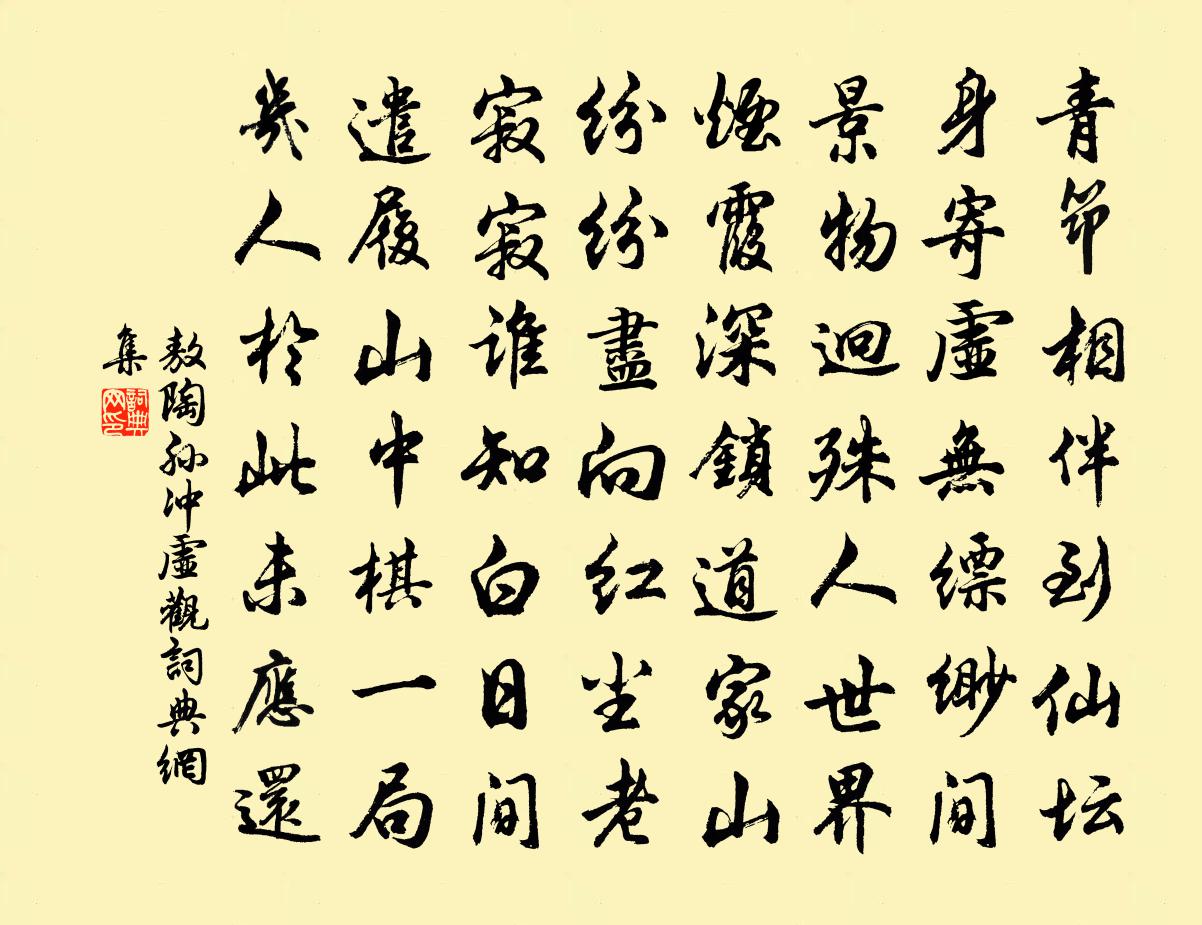 青笻相伴到仙坛
身寄虛無縹緲間
景物迥殊人世界
煙霞深鎖道家山
紛紛盡向红尘老
寂寂谁知白日间
遣履山中棋一局
幾人於此未應還
敖陶孙冲虛觀詞典網
集
詞典網印